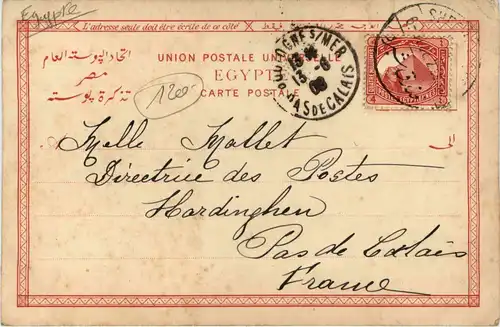 Egypte
L'adresse seule doit être écrite de ce côté
اتحاد البوستة العام
UNION POSTALE UNIVERSELLE
مصر
EGYPTE
تذكرة بوستة
CARTE POSTALE
1200
BOULOGNE S/MER
13 -8
09
PAS DE CALAIS
الى
Melle Mallet
Directrice des Postes
Hardinghen
Pas de Calais
France